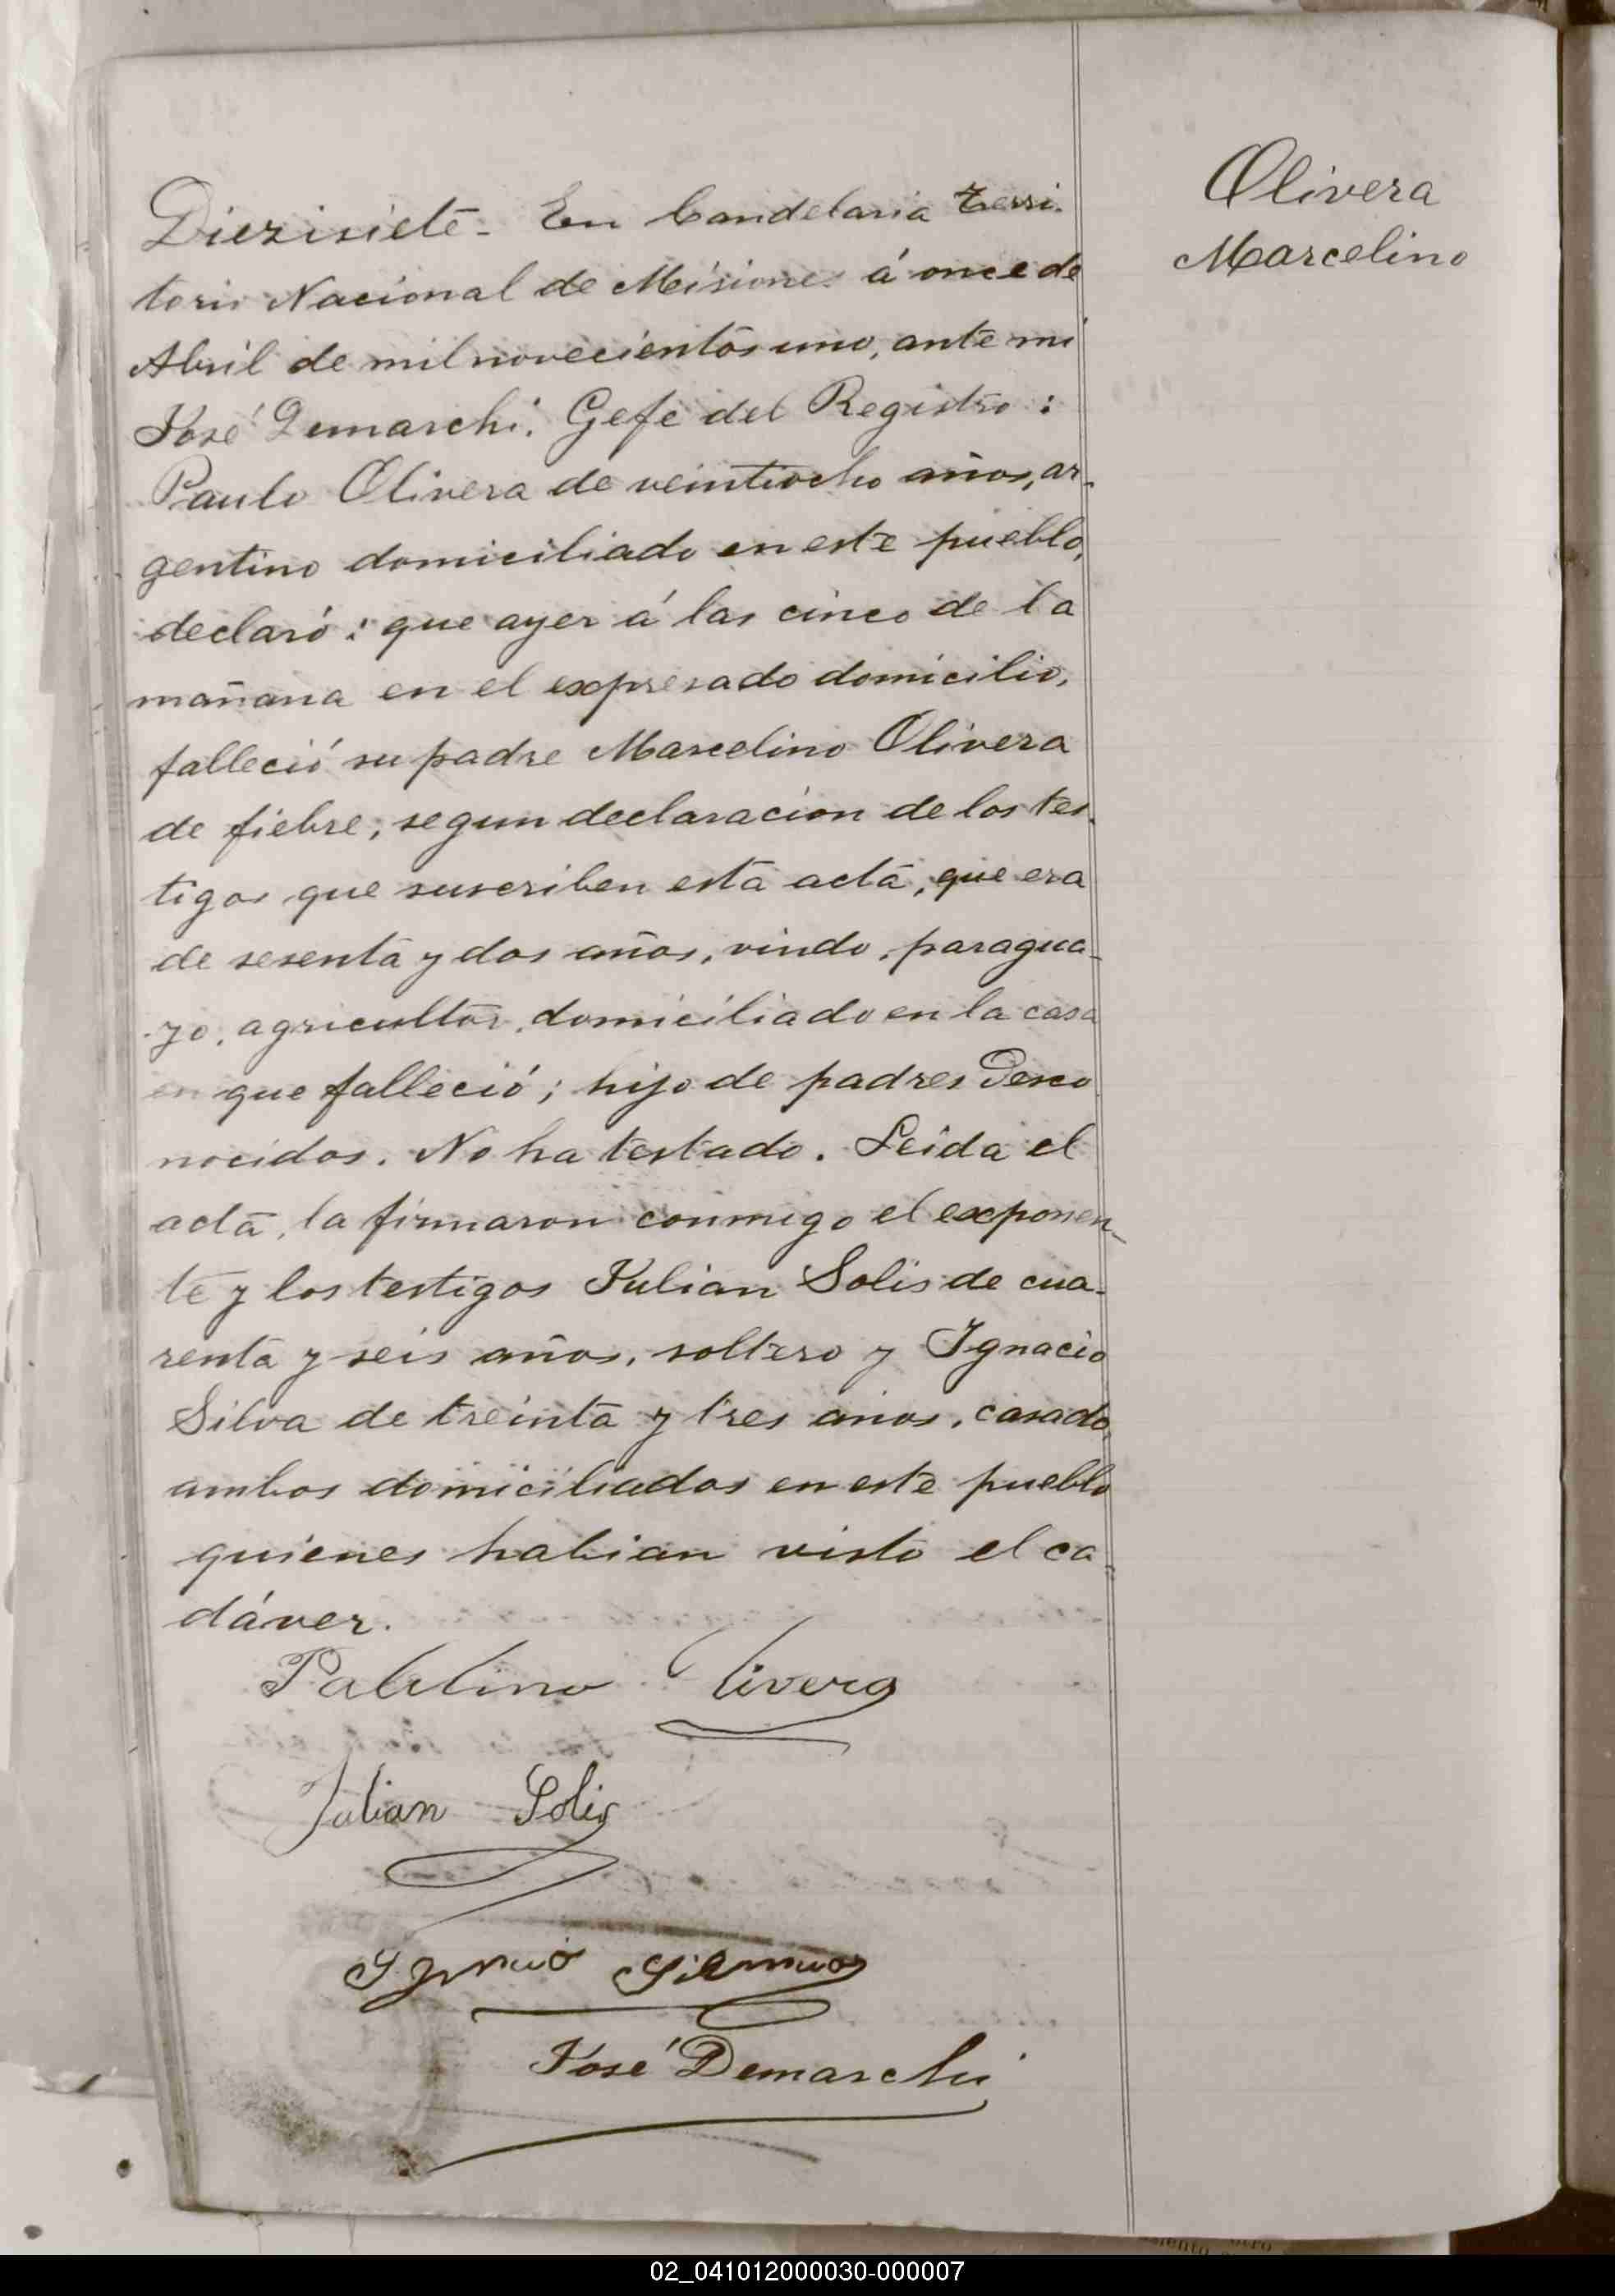 Olivera
Marcelino
Diezisiete - En Candelaria Terri-
torio Nacional de Misiones á once de
Abril de mil novecientos uno, ante mi
José Demarchi. Gefe del Registro:
Paulo Olivera de veintiocho años, ar-
gentino domiciliado en este pueblo,
declaró: que ayer á las cinco de la
mañana en el expresado domicilio,
falleció su padre Marcelino Olivera
de fiebre, segun declaracion de los tes-
tigos que suscriben esta acta, que era
de sesenta y dos años, viudo, paragua-
yo, agricultor, domiciliado en la casa
en que falleció; hijo de padres Desco
nocidos. No ha testado. Leida el
acta, la firmaron conmigo el exponen-
te y los testigos Julian Solis de cua-
renta y seis años, soltero y Ignacio
Silva de treinta y tres años, casado,
ambos domiciliados en este pueblo
quienes habian visto el ca-
dáver.
Olivera
Julian Solis
José Demarchi
02_041012000030-000007